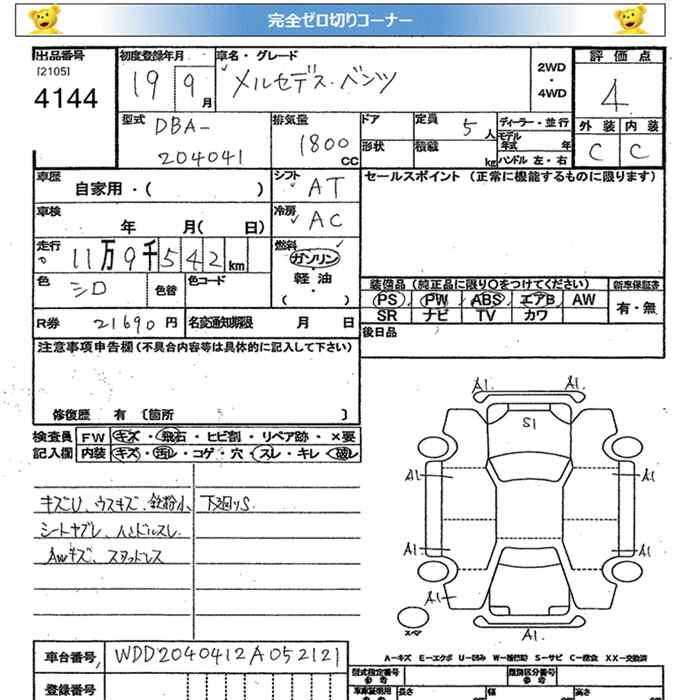 完全ゼロ切りコーナー
出品番号 初度登録年月 車名・グレード 評価点
[2105]
4144 19 9月 メルセデス・ベンツ 2WD・4WD 4
型式 DBA-204041
排気量 1800 CC
ドア 定員 5人 ディーラー・並行
形状 積載 kg モデル年式 年
ハンドル 左・右
外装 内装
C C
車歴 自家用・( )
シフト AT
セールスポイント (正常に機能するものに限ります)
車検 年 月( 日)
冷房 AC
走行 11万9千542km
燃料 ガソリン・軽油・( )
色 シロ 色替 色コード
装備品 (純正品に限り○をつけてください) 新車保証書
PS PW ABS エアB AW 有・無
SR ナビ TV カワ
R券 21690円 名変通知期限 月 日
後日品
注意事項申告欄(不具合内容等は具体的に記入して下さい)
修復歴 有 〔箇所 〕
検査員 FW キズ・飛石・ヒビ割・リペア跡・×要
記入欄 内装 キズ・汚レ・コゲ・穴・スレ・キレ・破レ
キズU、ウスキズ、鉄粉小、下廻りS.
シートヤブレ、ハンドルスレ
AWキズ、スタッドレス
A1 A1
S1
A1 A1
A1 A1
A1
A1
スペア
A-キズ E-エクボ U-凹み W-補修跡 S-サビ C-腐食 XX-交換済
車台番号 WDD2040412A052121
型式指定番号 参考 類別区分番号 参考
登録番号 車庫証明用 参考 長さ 幅 高さ